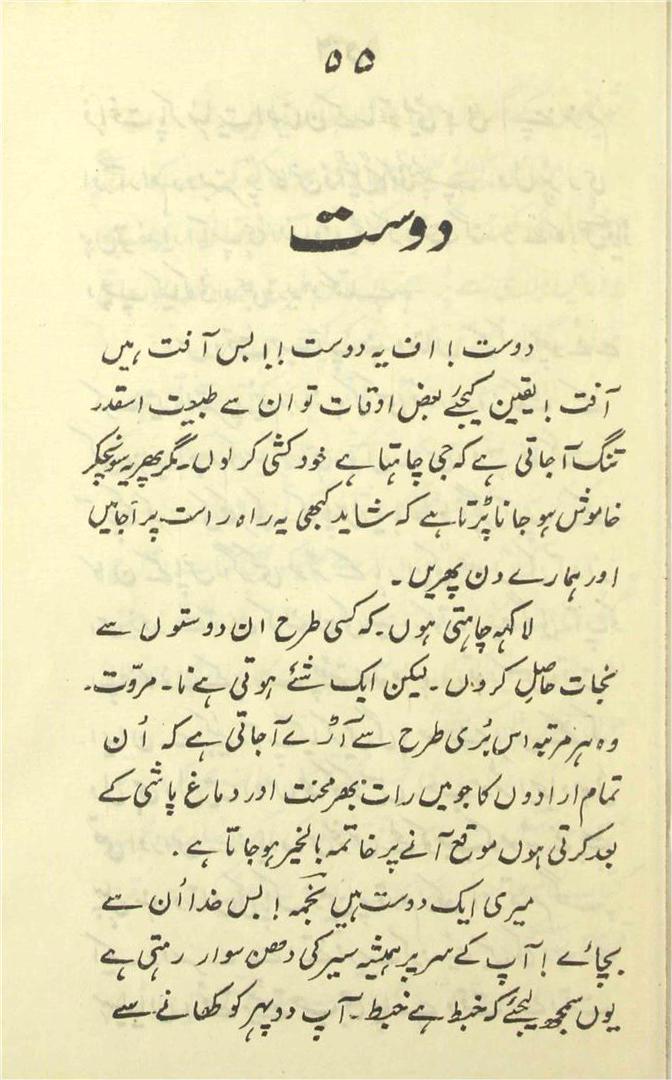 ۵۵
دوست
دوست ! اف یہ دوست !! بس آفت ہیں
آفت ! یقین کیجئے بعض اوقات تو ان سے طبیعت اسقدر
تنگ آجاتی ہے کہ جی چاہتا ہے خود کشی کر لوں۔ مگر پھر یہ سونچکر
خاموش ہو جانا پڑتا ہے کہ شاید کبھی یہ راہ راست پر آجائیں
اور ہمارے دن پھریں۔
لاکھ چاہتی ہوں۔ کہ کسی طرح ان دوستوں سے
نجات حاصل کروں۔ لیکن ایک شئے ہوتی ہے نا۔ مروّت۔
وہ ہر مرتبہ اس بُری طرح سے آڑے آجاتی ہے کہ اُن
تمام ارادوں کا جو میں رات بھر محنت اور دماغ پاشی کے
بعد کرتی ہوں موقع آنے پر خاتمہ بالخیر ہو جاتا ہے۔
میری ایک دوست ہیں نجمہ ! بس خدا اُن سے
بچائے ! آپ کے سر پر ہمیشہ سیر کی دھن سوار رہتی ہے
یوں سمجھ لیجئے کہ خبط ہے خبط۔ آپ دوپہر کو کھانے سے